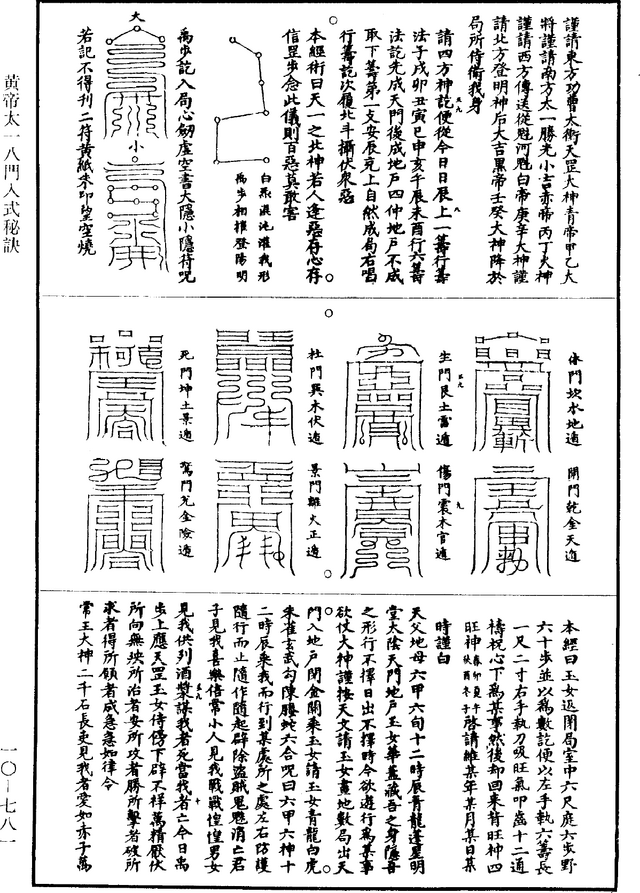 謹請東方功曹太衝天罡大神青帝甲乙大
將謹請南方太一勝光小吉赤帝丙丁大神
謹請西方傳送從魁河魁白帝庚辛大神謹
請北方登明神后大吉黑帝壬癸大神降於
局所侍衛我身
請四方神訖便從今日日辰上一籌行籌
法子戌卯丑寅巳申亥午辰未酉行六籌
法訖先成天門後成地戶四仲地戶不成
取下籌第一支安辰克上自然成局右唱
行籌訖次履北斗攝伏眾惡
本經術曰天一之北神若人逢惡存心存
信罡步念此儀則百惡莫敢害
白炁混沌灌我形
禹步相推登陽明
禹步訖入局心劒虛空書大隱小隱符呪
大
小
若記不得刊二符黃紙朱印望空燒
休門坎水地遁
開門乾金天遁
生門艮土雷遁
傷門震木官遁
杜門巽木伏遁
景門離火正遁
死門坤土景遁
驚門兌金險遁
本經曰玉女返閉局室中六尺庭六步野
六十步並以為數訖便以左手執六籌長
一尺二寸右手執刀吸旺氣叩齒十二通
禱祝心下為某事然後却回來背旺神四
旺神春卯夏午秋酉冬子啓請維某年某月某日某
時謹白
天父地母六甲六旬十二時辰青龍蓬星明
堂太陰天門地戶玉女華蓋藏吾之身隱吾
之形行不擇日出不擇時今欲遊行為某事
欲仗大神謹按天文請玉女畫地數局出天
門入地戶閉金關乘玉女請玉女青龍白虎
朱雀玄武勾陳螣蛇六合呪曰六甲六神十
二時辰乘我而行到某處所之處左右防護
隨行而止隨作隨起辟除盜賊鬼魅消亡君
子見我喜樂倍常小人見我戰戰惶惶男女
見我供列酒漿謀我者死當我者亡今日禹
步上應天罡玉女侍傍下辟不祥萬精厭伏
所向無殃所治者安所攻者勝所擊者破所
求者得所願者成急急如律令
常王大神二千石長吏見我者愛如赤子萬
黃帝太一八門入式秘訣
一〇—七八一